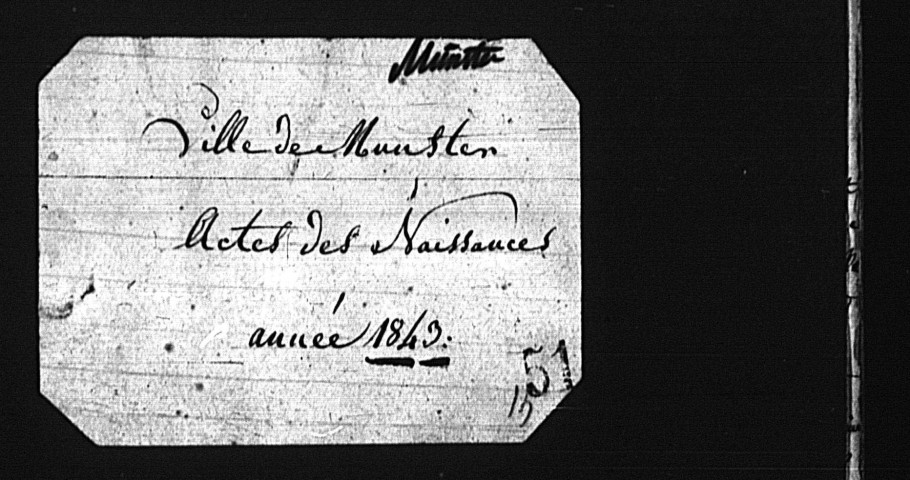 Munster
Ville de Munster
Actes des Naissances
année 1843.
51